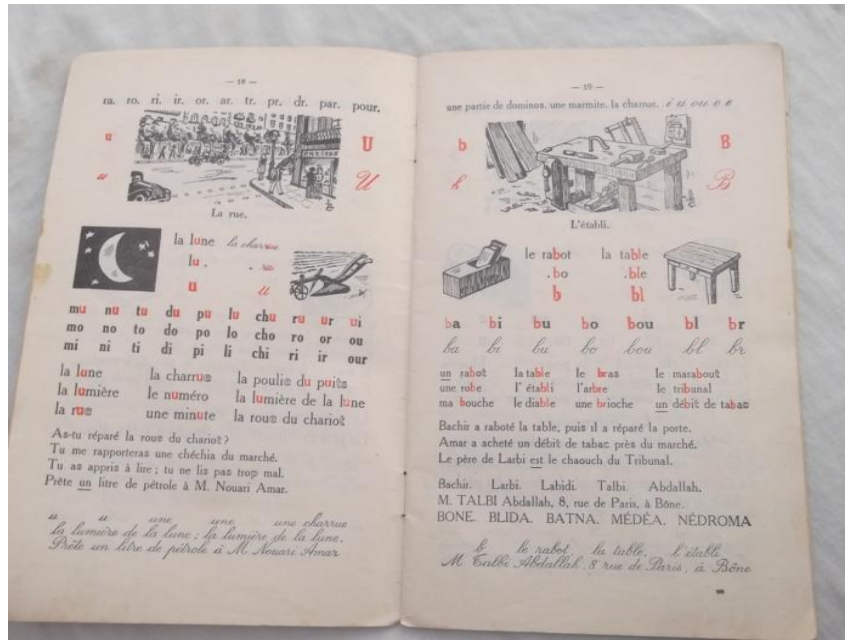 — 18 —
ra. ro. ri. ir. or. ar. tr. pr. dr. par. pour.
u U
u U
La rue.
la lune la charrue
lu. .ru
u u
mu nu tu du pu lu chu ru ur ui
mo no to do po lo cho ro or ou
mi ni ti di pi li chi ri ir our
la lune la charrue la poulie du puits
la lumière le numéro la lumière de la lune
la rue une minute la roue du chariot
As-tu réparé la roue du chariot ?
Tu me rapporteras une chéchia du marché.
Tu as appris à lire ; tu ne lis pas trop mal.
Prête un litre de pétrole à M. Nouari Amar.
u u une une une charrue
la lumière de la lune ; la lumière de la lune.
Prête un litre de pétrole à M. Nouari Amar
— 19 —
une partie de dominos. une marmite. la charrue. i u ou o e
b B
b B
L'établi.
le rabot la table
.bo .ble
b bl
ba bi bu bo bou bl br
ba bi bu bo bou bl br
un rabot la table le bras le marabout
une robe l'établi l'arbre le tribunal
ma bouche le diable une brioche un débit de tabac
Bachir a raboté la table, puis il a réparé la porte.
Amar a acheté un débit de tabac près du marché.
Le père de Larbi est le chaouch du Tribunal.
Bachir. Larbi. Labidi. Talbi. Abdallah.
M. TALBI Abdallah, 8, rue de Paris, à Bône.
BONE. BLIDA. BATNA. MÉDÉA. NÉDROMA
b le rabot la table, l'établi
M. Talbi Abdallah, 8 rue de Paris, à Bône